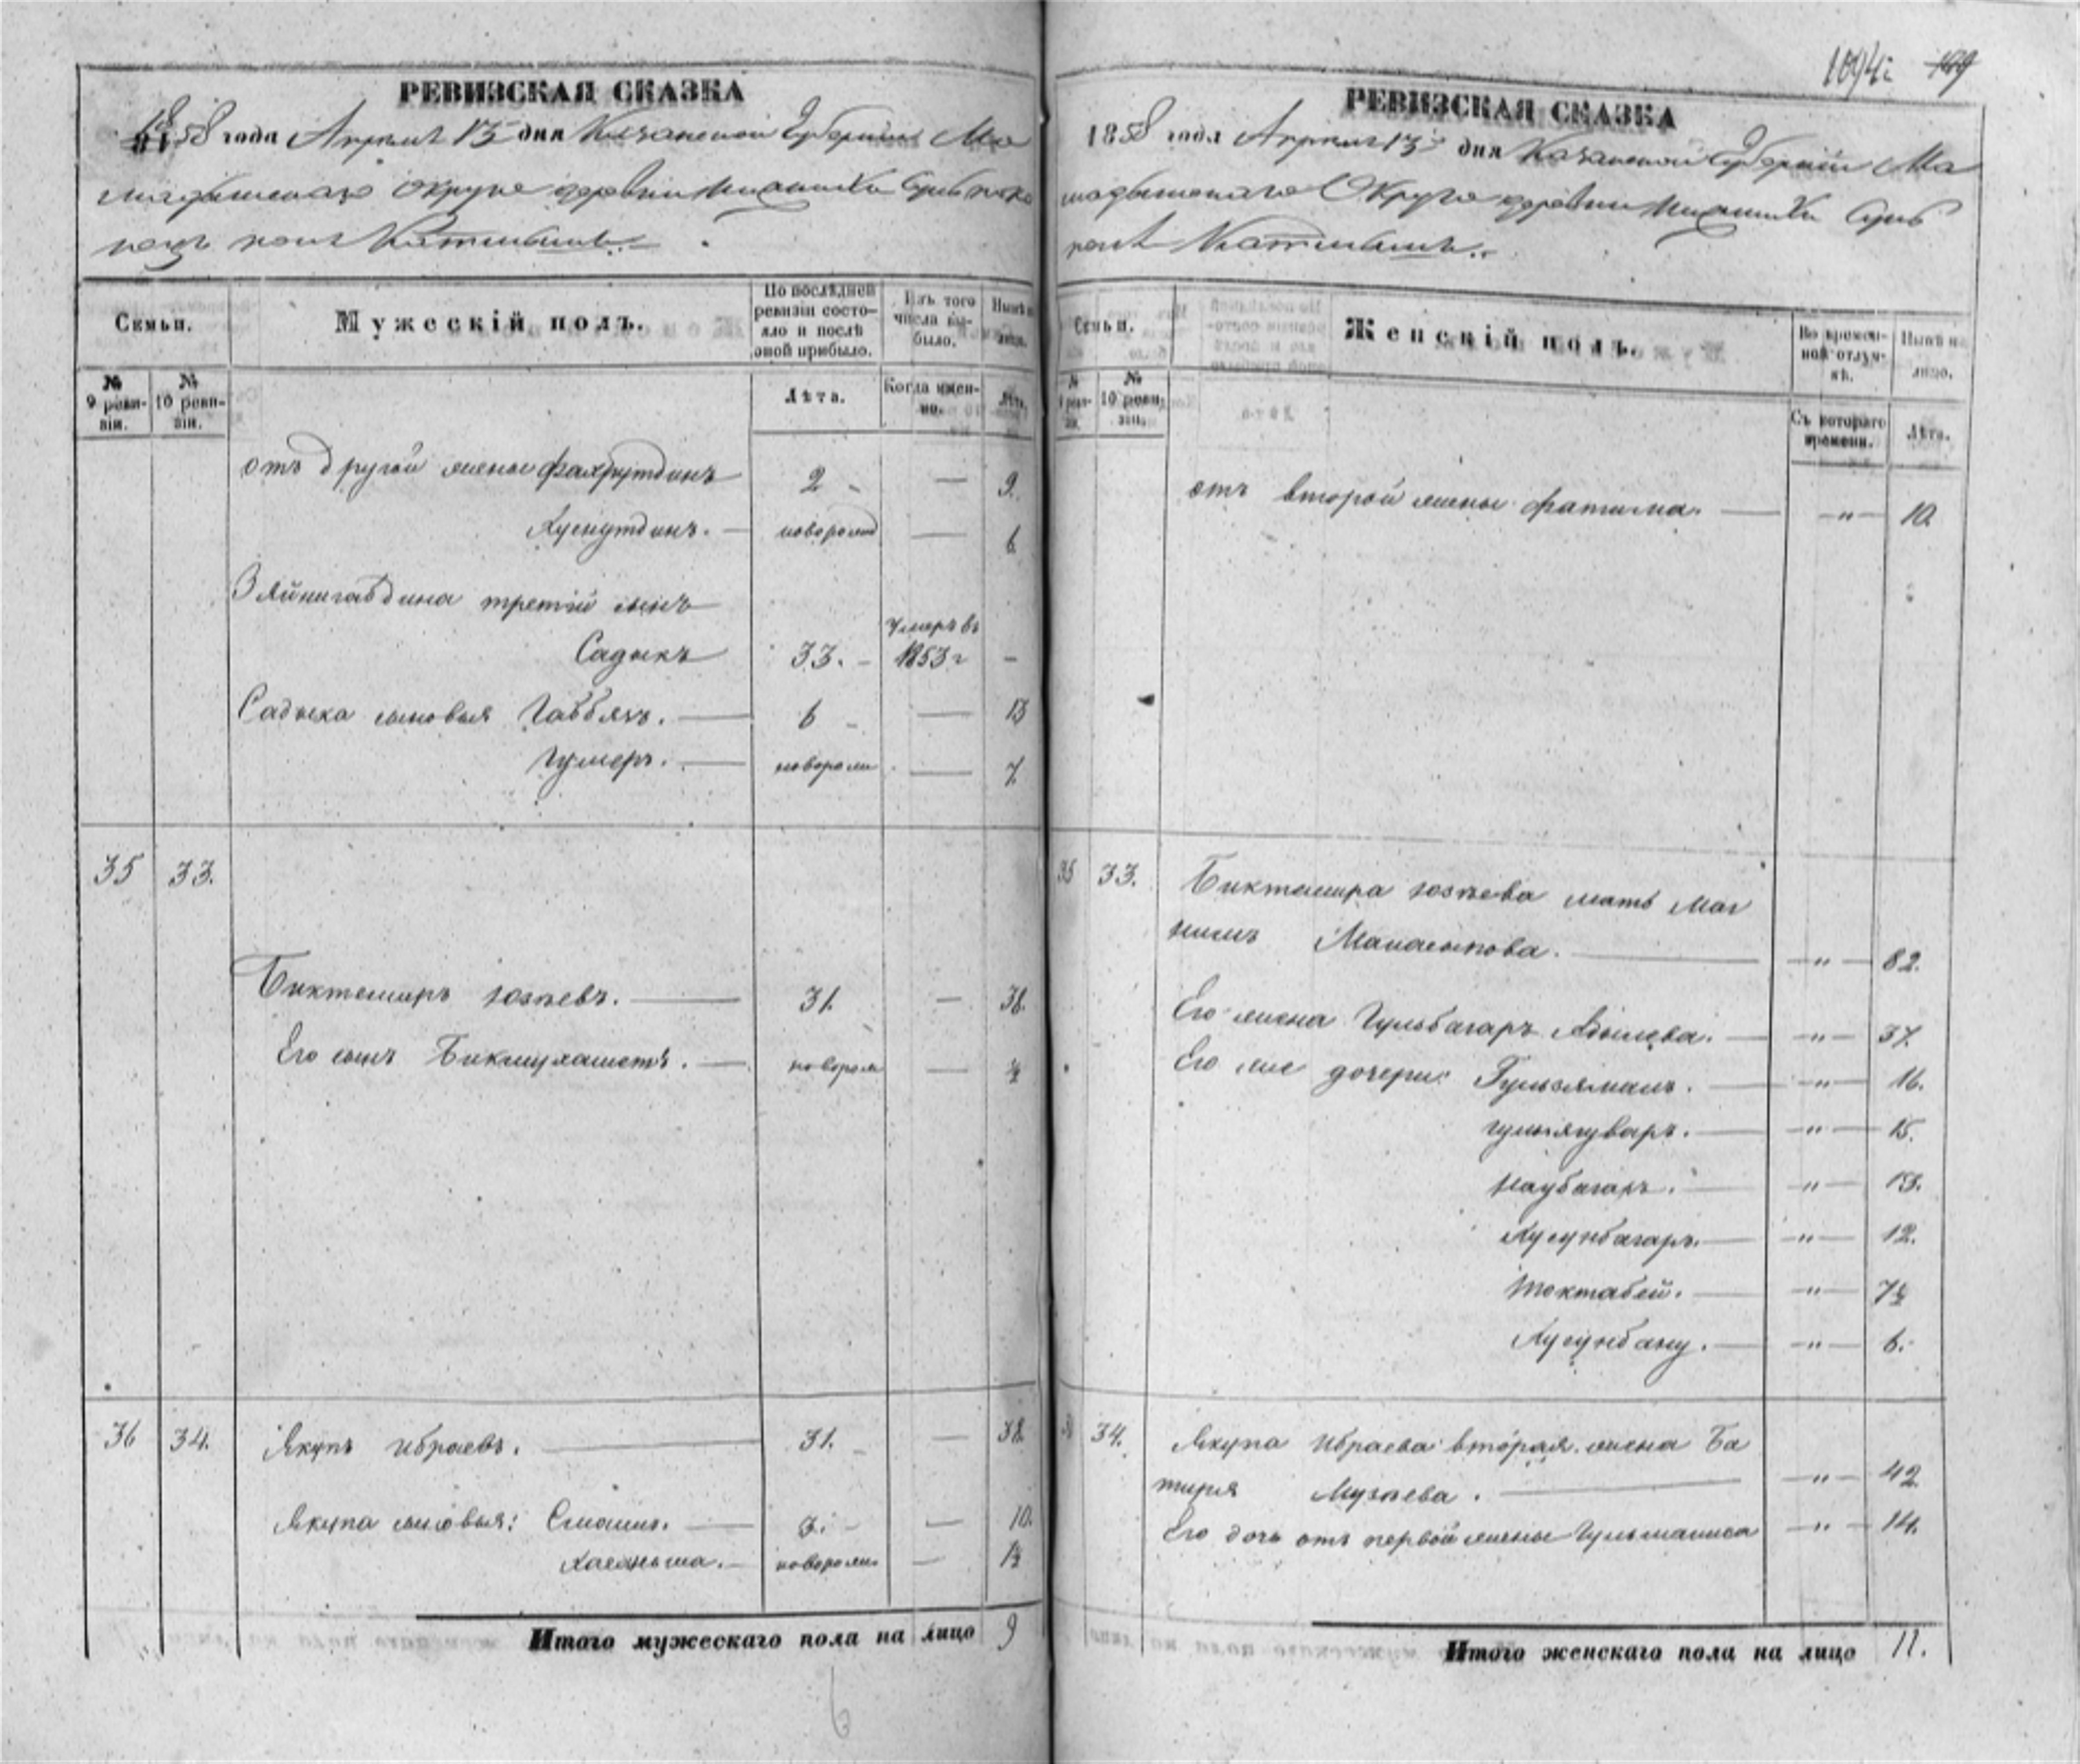 РЕВИЗСКАЯ СКАЗКА
1858 года Апреля 13 дня Казанской Губернии Ма
мадышскаго округа деревни
Семьи.
Мужескій полъ.
По послѣдней ревизіи состояло и послѣ оной прибыло.
Изъ того числа выбыло.
Нынѣ на лицо.
№ 9 ревизіи.
№ 10 ревизіи.
Лѣта.
Когда именно.
Лѣта.
отъ другой жены Фахрутдинъ 2 — 9.
Хуснутдинъ. — новорожд — 6
Зяйнигабдина третій сынъ
Садыкъ 33. — умеръ въ 1853 г —
Садыка сыновья Габбясъ. — 6 — 13
Гумеръ. — новорож — 7
35 33.
Биктемиръ Юзѣевъ. — 31. — 38.
Его сынъ Бикмухаметъ. — новорож — ½
36 34. Якупъ Ибраевъ. — 31. — 38
Якупа сыновья: — 3. — 10.
новорож — 1½
Итого мужескаго пола на лицо 9
6
1094
РЕВИЗСКАЯ СКАЗКА
1858 года Апреля 13 дня Казанской Губерніи Ма
мадышскаго Округа деревни
Семьи.
Женскій полъ.
Во временной отлучкѣ.
Нынѣ на лицо.
№ 9 ревизіи.
№ 10 ревизіи.
Съ котораго времени.
Лѣта.
отъ второй жены Фатима. — „ — 10
35 33. Биктемира Юзѣева мать Маг
— „ — 82.
Его жена Гульбагаръ Абдіева. — „ — 37.
Его же дочери: Гульзяманъ. — „ — 16.
— „ — 15.
Маубагаръ. — „ — 13.
Хусунбагаръ. — „ — 12.
Токтабей. — „ — 7½
Хусунбану. — „ — 6.
34. Якупа Ибраева вторая жена Ба
— „ — 42
Его дочь отъ первой жены — „ — 14.
Итого женскаго пола на лицо 11.